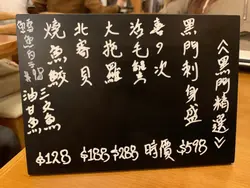 《黑門精選》
黑門刺身盛 $598
喜の次 時價
海毛蟹
大扎羅 $288
北寄貝 $188
燒魚鮫 $128
三文魚
油甘魚